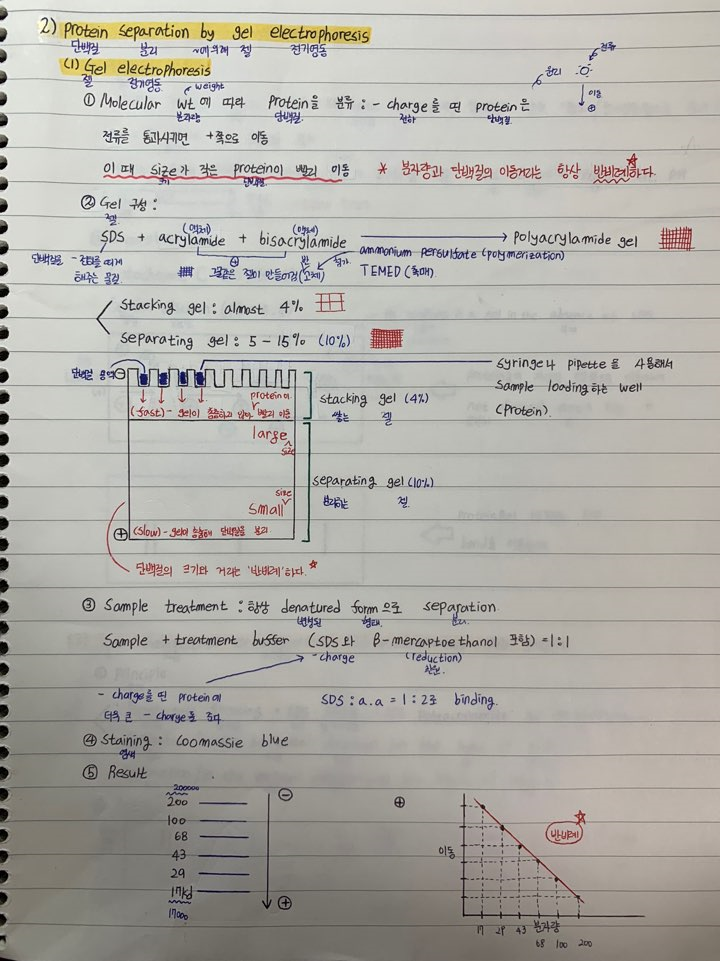 2) Protein separation by gel electrophoresis
단백질 분리 ~에 의해 젤 전기영동
(1) Gel electrophoresis
젤 전기영동
weight
① Molecular wt에 따라 Protein을 분류 : - charge를 띤 protein은
분자량 단백질 전하 단백질
분리
전류
이동
⊕
전류를 통과시키면 +쪽으로 이동
이 때 size가 작은 protein이 빨리 이동 * 분자량과 단백질의 이동거리는 항상 반비례하다.
크기 단백질
② Gel 구성 :
젤
(액체) (액체)
SDS + acrylamide + bisacrylamide → polyacrylamide gel
단백질을 - 전하를 띠게
해주는 물질
⊕
그물같은 젤이 만들어짐(고체)
반 첨가
ammonium persulfate (polymerization)
TEMED (촉매)
stacking gel : almost 4%
separating gel : 5 - 15% (10%)
단백질 용액 ⊖
syringe나 pipette을 사용해서
sample loading하는 well
(protein).
protein이
(fast) - gel이 촘촘하지 않아 빨리 이동
stacking gel (4%)
쌓는 젤
large
size
separating gel (10%)
분리하는 젤
size
small
⊕ (slow) - gel이 촘촘해 단백질을 분리
단백질의 크기와 거리는 '반비례'하다.
③ Sample treatment : 항상 denatured form으로 separation
변성된 형태 분리
Sample + treatment buffer (SDS와 β-mercaptoethanol 포함) = 1 : 1
-charge (reduction)
환원
- charge를 띤 protein에
더욱 큰 - charge를 준다.
SDS : a.a = 1 : 2로 binding.
④ Staining : coomassie blue
염색
⑤ Result
200000
200
100
68
43
29
17kd
17000
⊖
⊕
⊕
이동
반비례
17 29 43 분자량
68 100 200